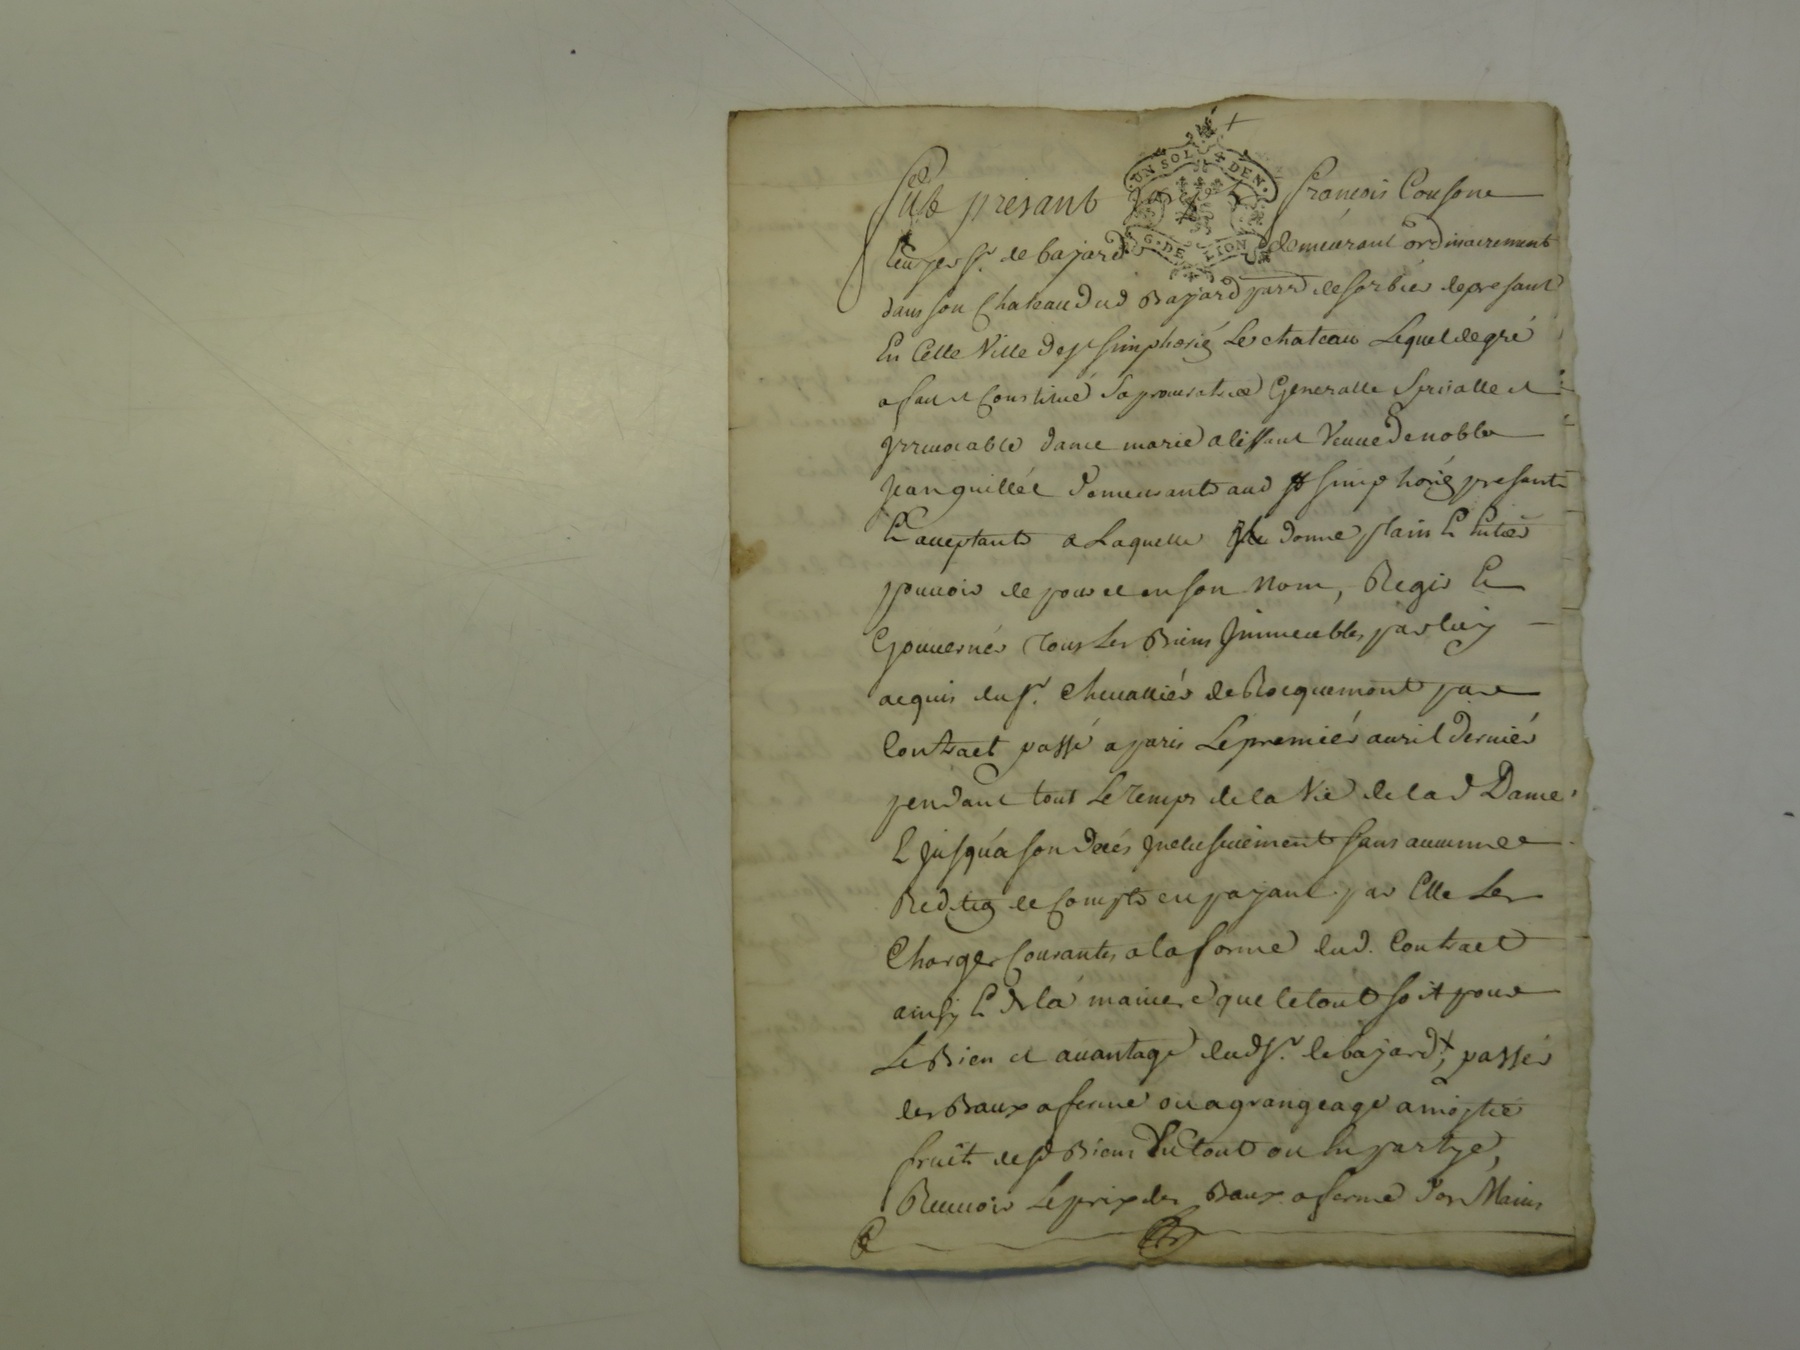 UN SOL 4 DEN.
G. DE LION
Fut présant françois Cousone
sr. de bajard demeurant ordinairement
dans son Chateau dud Bajard parr de sorbier de présant
En Cette Ville de st simphorië Le chateau Lequel de gré
a fait et Constitué sa procuratrice Generalle specialle et
Irrevocable dame marie alissant Veuve de noble
Jean guillét demeurante aud st simphorië présante
Et acceptante a Laquelle Il donne plain Et Entier
pouvoir de pour et en son Nom, Regir Et
Gouverner Tous Les Biens Immeubles par luy
acquis du sr. Chevallier de Rocquemont par
Contract passé a paris Le premiér avril derniér
pendant tout Le Temps de la Vie de lad Dame
Et jusqu'a son decés Inclusivement sans aucunne
Redition de Compte en payant par Elle Les
Charges Courantes a la forme dud. Contract
ainsy Et de la maniere que le tout soit pour
Le Bien et avantage dud sr. de bajard, passer
des Baux a ferme ou a grangeage a moytié
fruit desd Biens En tout ou En partye,
Recevoir Le prix des Baux a ferme Mains